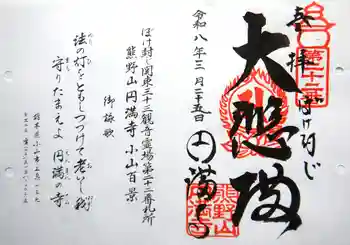 奉拝
ぼけ封じ
大悲殿
令和八年三月二十五日
円満寺
熊野山
円満寺
ぼけ封じ関東三十三観音霊場第二十二番札所
熊野山 円満寺 小山百景
御詠歌
法の灯をともしつづけて老いし称
守りたまえよ 円満の寺